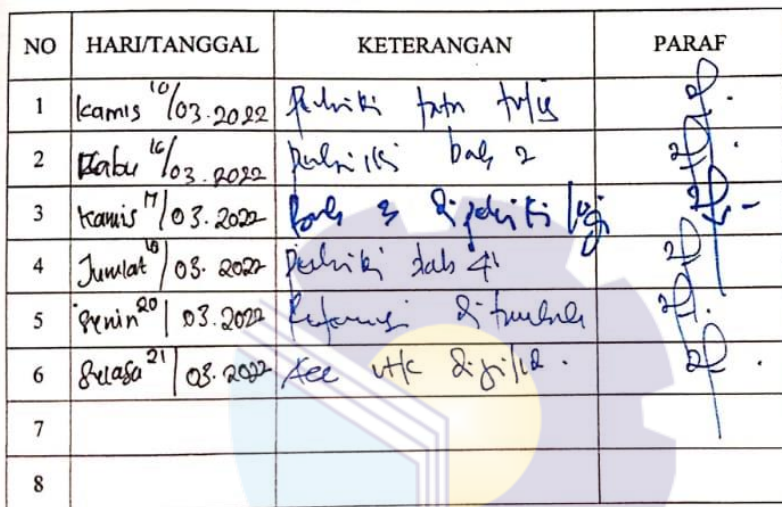 NO HARI/TANGGAL KETERANGAN PARAF
1 Kamis 10/03.2022 Perbaiki tata tulis
2 Rabu 16/03.2022 perbaiki bab 2
3 Kamis 17/03.2022 bab 3 diperbiki lagi
4 Jumlat 18/03.2022 Perbaiki bab 4
5 Senin 20/03.2022 Referensi ditambah
6 Selasa 21/03.2022 Acc utk dijilid.
7
8